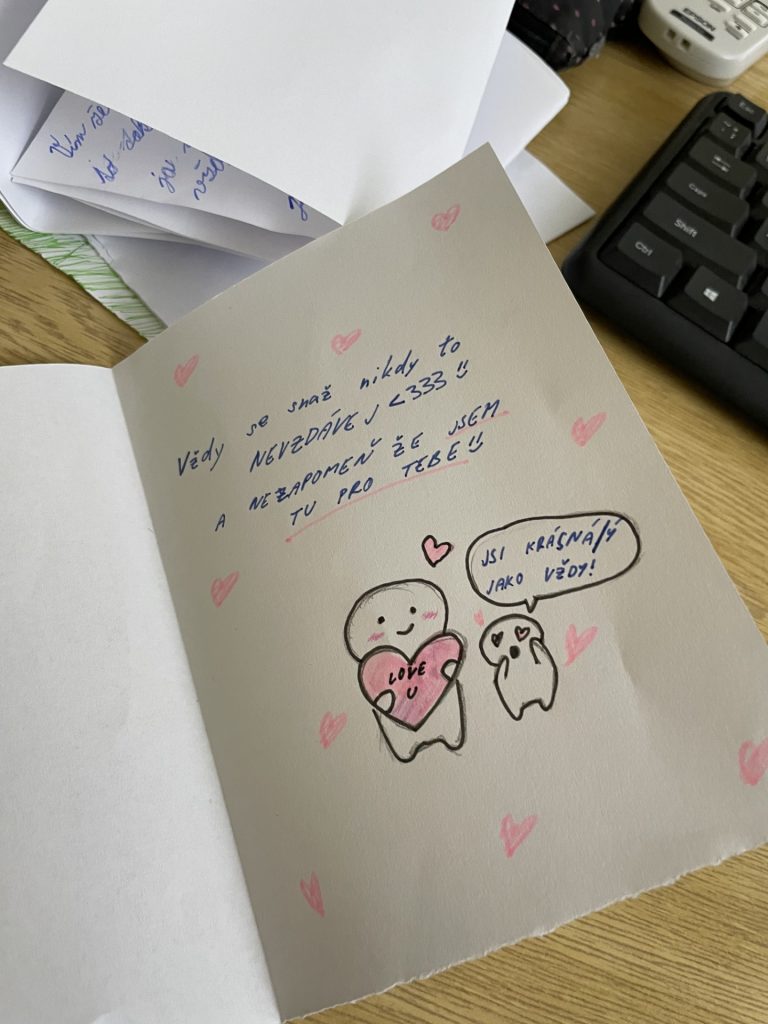 Vím že
vše
Vždy se snaž nikdy to
NEVZDÁVEJ <333 !!
A NEZAPOMEŇ ŽE JSEM
TU PRO TEBE !!
JSI KRÁSNÁ/Ý
JAKO VŽDY!
LOVE
U
EPSON
Esc
Caps
Shift
Ctrl